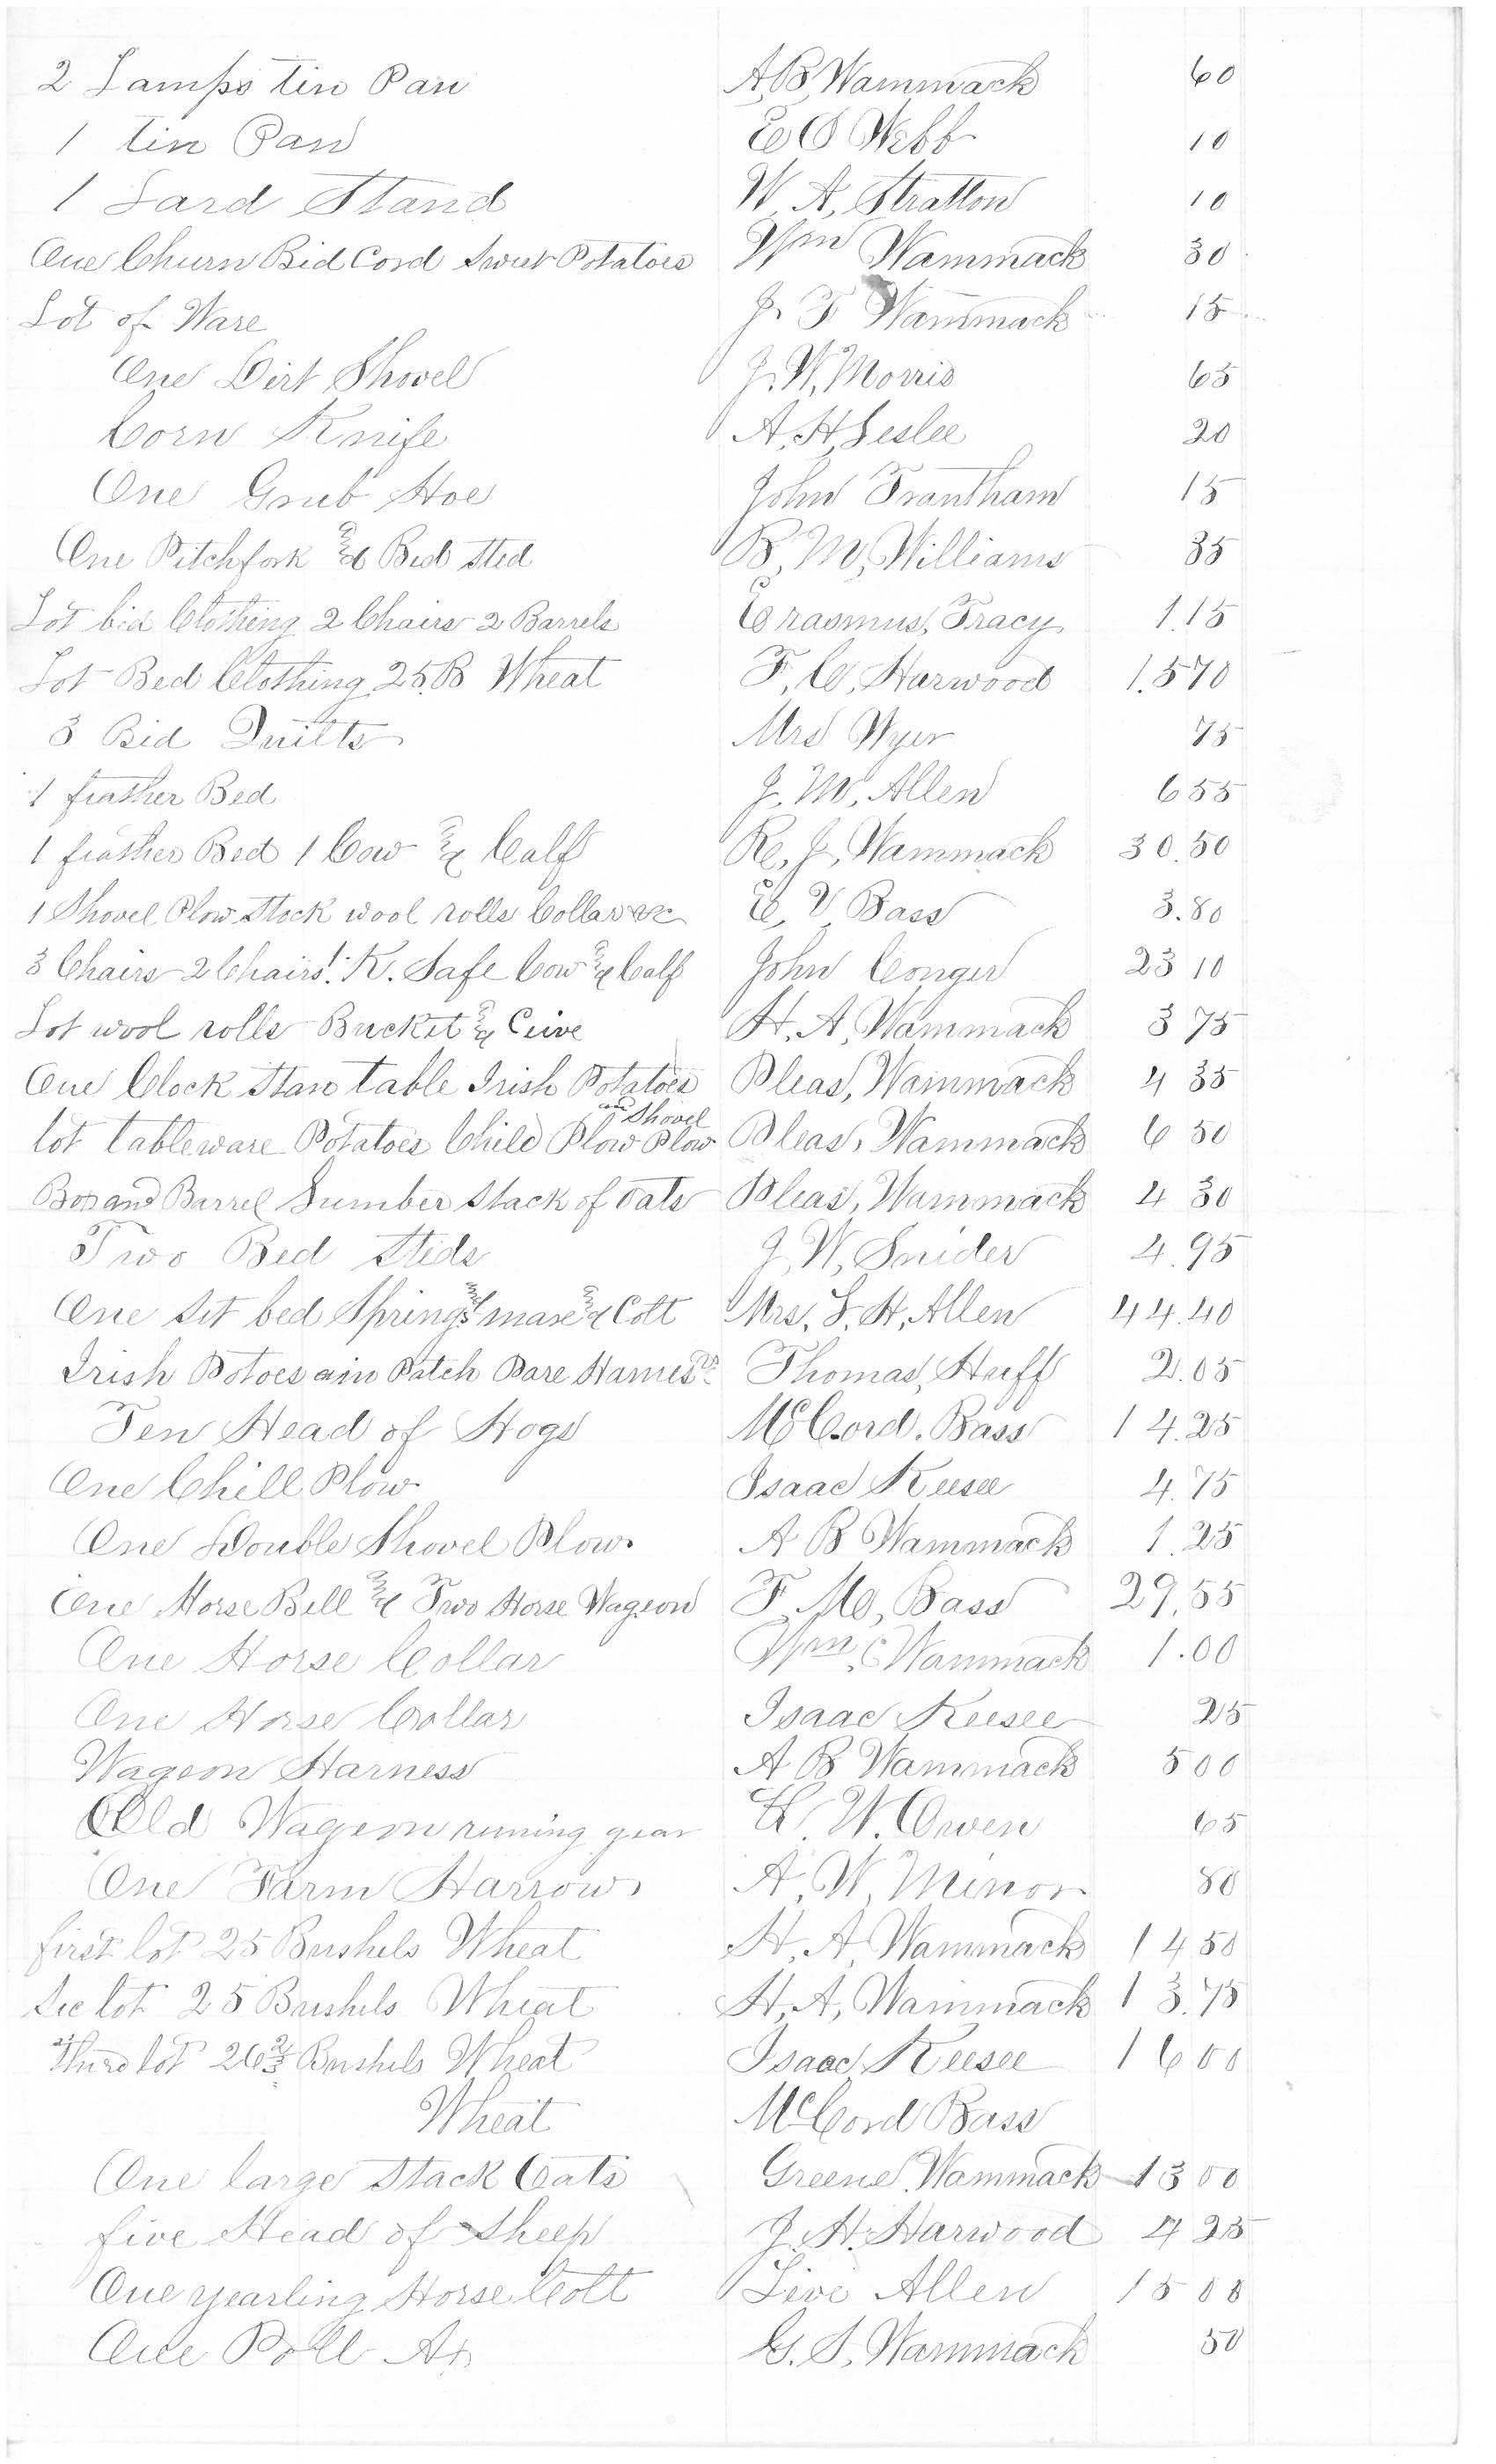 2 Lamps tin Pan A, B, Wammack 60
1 tin Pan E O Webb 10
1 Lard Stand W. A, Stratton 10
One Churn Bid Cord Sweet Potatoes Wm Wammack 30
Lot of Ware J. F Wammack 15
One Dirt Shovel J. W, Morris 65
Corn Knife A, H, Leslee 20
One Grub Hoe John Trantham 15
One Pitchfork & Bed Sted B, M, Williams 35
Lot bid Clothing 2 Chairs 2 Barrels Erasmus, Tracy 1.15
Lot Bed Clothing 25.B Wheat F, C, Harwood 1.570
3 Bid Quilts Mrs Wyer 75
1 feather Bed J, M, Allen 655
1 feather Bed 1 Cow & Calf R, J, Wammack 30.50
1 Shovel Plow Stock wool rolls Collar &c E, V, Bass 3.80
3 Chairs 2 Chairs 1. K. Safe Cow & Calf John Conger 23 10
Lot wool rolls Bucket & Ceive H. A, Wammack 3 75
One Clock Stan table Irish Potatoes Pleas, Wammack 4 35
and Shovel
lot tableware Potatoes Chile Plow Plow Pleas, Wammack 6 50
Box and Barrel Lumber Stack of Oats Pleas, Wammack 4 30
Two Bed Steds J, W, Snider 4.95
One Set bed Springs & mare & Colt Mrs, L, H, Allen 44.40
Irish Potoes in Patch Pare Hames Thomas, Huff 2.05
Ten Head of Hogs McCord. Bass 14.25
One Chill Plow Isaac Keesee 4.75
One Double Shovel Plow A B Wammack 1.25
One Horse Bell & Two Horse Wageon F. M, Bass 29,55
One Horse Collar Wm, C Wammack 1.00
One Horse Collar Isaac Keesee 25
Wageon Harness A B Wammack 500
Old Wageon runing gear W. Owen 65
One Farm Harrow A, W, Minor 80
first lot 25 Bushels Wheat H, A, Wammack 1450
Sec lot 25 Bushels Wheat H, A, Wammack 13.75
Third lot 26 2/3 Bushels Wheat Isaac Keesee 1600
Wheat McCord Bass
One large Stack Oats Greene Wammack 1300
five Head of Sheep J. H. Harwood 4 25
One yearling Horse Colt Live Allen 1500
One Poll Ax G. S, Wammack 50